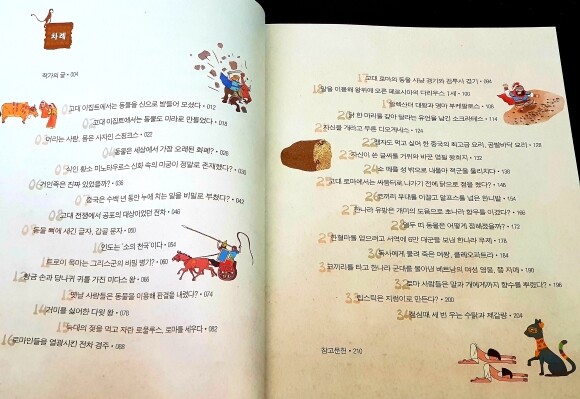 차례
작가의 글 · 004
01 고대 이집트에서는 동물을 신으로 받들어 모셨다? · 012
02 고대 이집트에서는 동물도 미라로 만들었다? · 018
03 머리는 사람, 몸은 사자인 스핑크스 · 022
04 동물은 세상에서 가장 오래된 화폐? · 028
05 상인 황소 미노타우로스 신화 속의 미궁이 정말로 존재했다? · 030
06 거인족은 진짜 있었을까? · 036
07 중국은 수백 년 동안 누에 치는 일을 비밀로 부쳤다? · 042
08 고대 전쟁에서 공포의 대상이었던 전차 · 046
09 동물 뼈에 새긴 글자, 갑골 문자 · 050
10 인도는 '소의 천국'이다 · 054
11 트로이 목마는 그리스군의 비밀 병기? · 060
12 황금 손과 당나귀 귀를 가진 미다스 왕 · 066
13 옛날 사람들은 동물을 이용해 판결을 내렸다? · 074
14 귀미를 싫어한 다윗 왕 · 078
15 늑대의 젖을 먹고 자란 로물루스, 로마를 세우다 · 082
16 로마인들을 열광시킨 전차 경주 · 088
17 고대 로마의 동물 사냥 경기와 검투사 경기 · 094
18 말을 이용해 왕위에 오른 페르시아의 다리우스 1세 · 100
19 알렉산더 대왕과 명마 부케팔로스 · 106
20 닭 한 마리를 갚아 달라는 유언을 남긴 소크라테스 · 114
21 자신을 개라고 부른 디오게네스 · 124
22 혼자도 먹고 싶어 한 중국의 최고급 요리, 곰발바닥 요리 · 128
23 자신이 쓴 글씨를 거위와 바꾼 명필 왕희지 · 132
24 소 떼를 성 밖으로 내몰아 적군을 물리치다 · 138
25 고대 로마에서는 싸움터로 나가기 전에 닭으로 점을 쳤다? · 146
26 코끼리 부대를 이끌고 알프스를 넘은 한니발 · 154
27 한나라 유방은 개미의 도움으로 초나라 항우를 이겼다? · 166
28 열두 띠 동물은 어떻게 정해졌을까? · 172
29 천혈마를 얻으려고 서역에 6만 대군을 보낸 한나라 무제 · 178
30 독사에게 물려 죽은 여왕, 클레오파트라 · 184
31 코끼리를 타고 한나라 군대를 몰아낸 베트남의 여성 영웅, 쯩 자매 · 190
32 로마 사람들은 말과 개에게까지 향수를 뿌렸다? · 196
33 립스틱은 지렁이로 만든다? · 200
34 점심때 세 번 우는 수탉과 제갈량 · 204
참고문헌 · 210